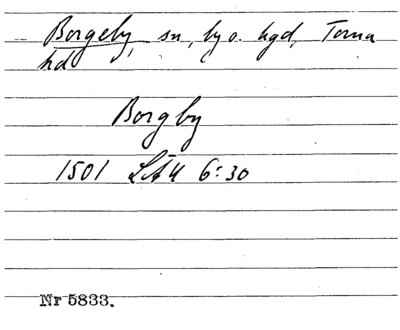 Borgeby, sn, by o. hgd, Torna
hd
Borgby
1501 LÄU 6:30
Nr 5833.